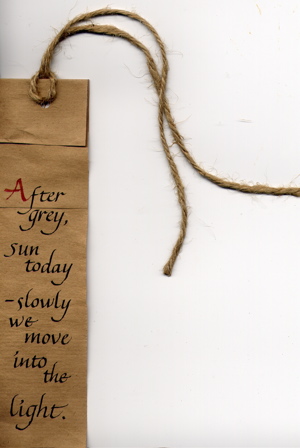 After
grey,
sun
today
-slowly
we
move
into
the
light.